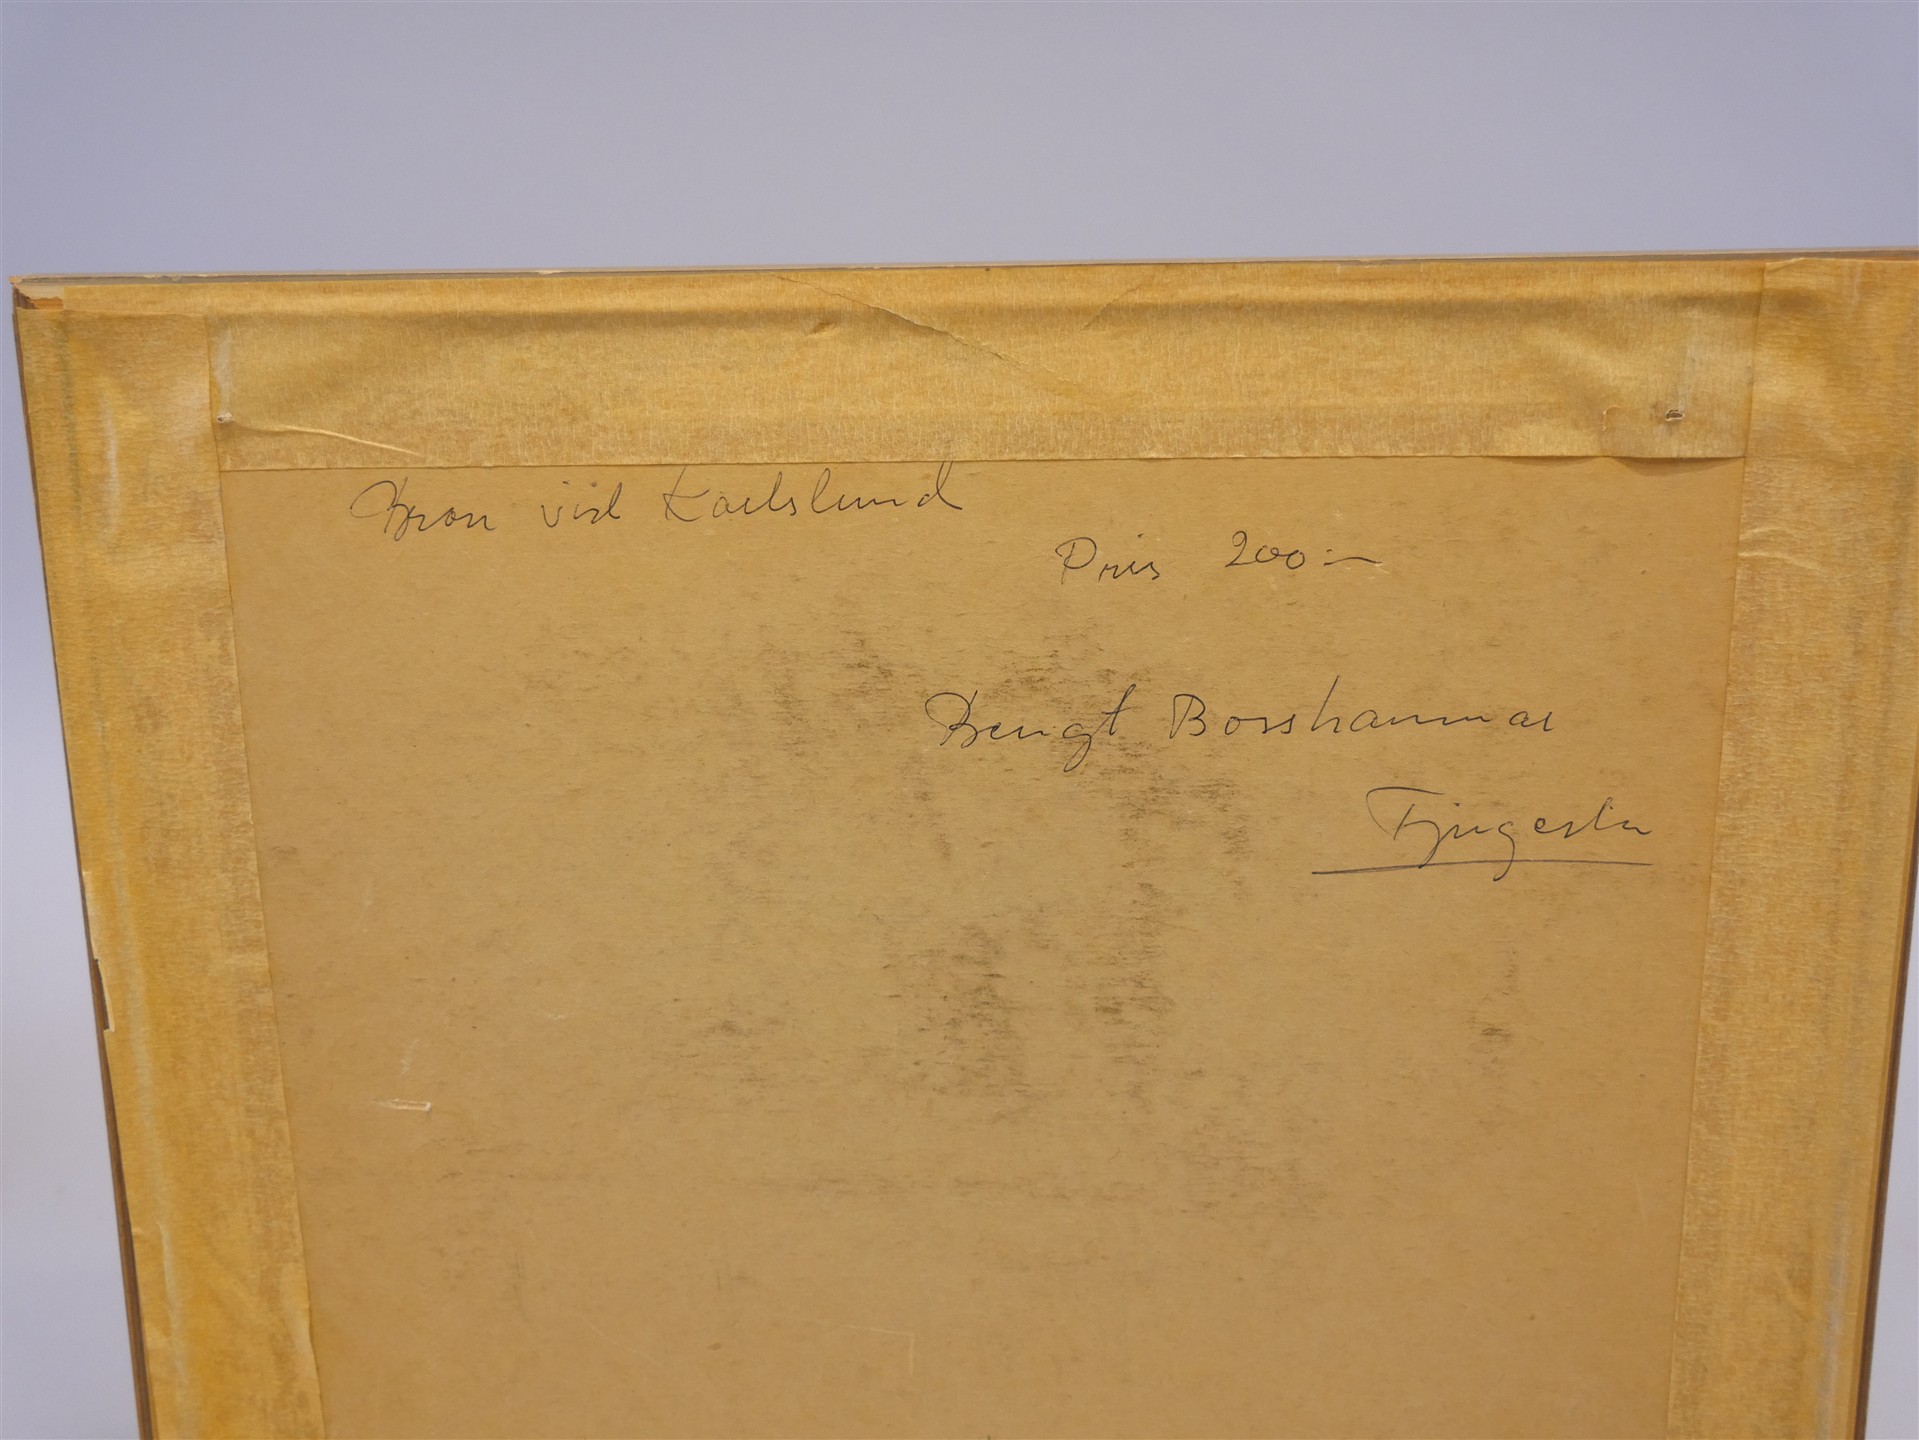 Bron vid Karlslund
Pris 200:-
Bengt Bosshammar
Fjugesta